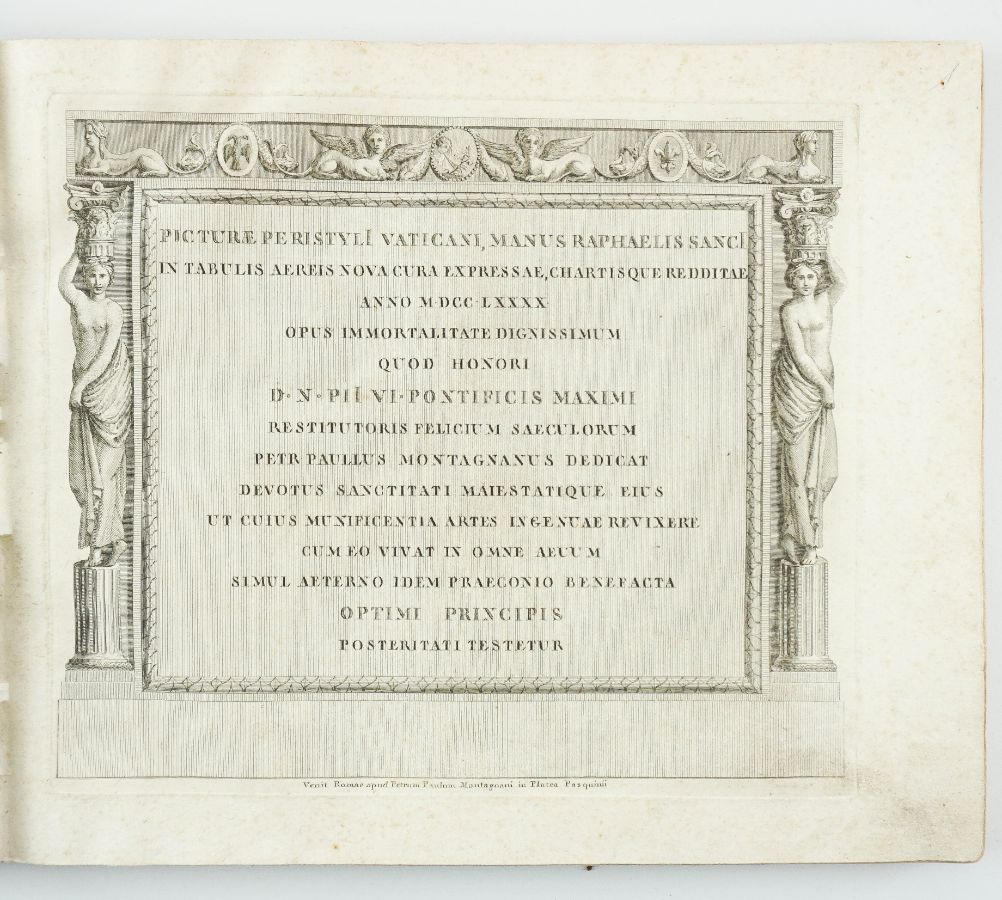 PICTURÆ PERISTYLI VATICANI, MANUS RAPHAELIS SANCI
IN TABULIS AEREIS NOVA CURA EXPRESSAE, CHARTISQUE REDDITAE
ANNO M·DCC·LXXXX·
OPUS IMMORTALITATE DIGNISSIMUM
QUOD HONORI
D·N·PII VI·PONTIFICIS MAXIMI
RESTITUTORIS FELICIUM SAECULORUM
PETR PAULLUS MONTAGNANUS DEDICAT
DEVOTUS SANCTITATI MAIESTATIQUE EIUS
UT CUIUS MUNIFICENTIA ARTES INGENUAE REVIXERE
CUM EO VIVAT IN OMNE AEUUM
SIMUL AETERNO IDEM PRAECONIO BENEFACTA
OPTIMI PRINCIPIS
POSTERITATI TESTETUR
Venit Romae apud Petrum Paulum Montagnani in Platea Pasquinii